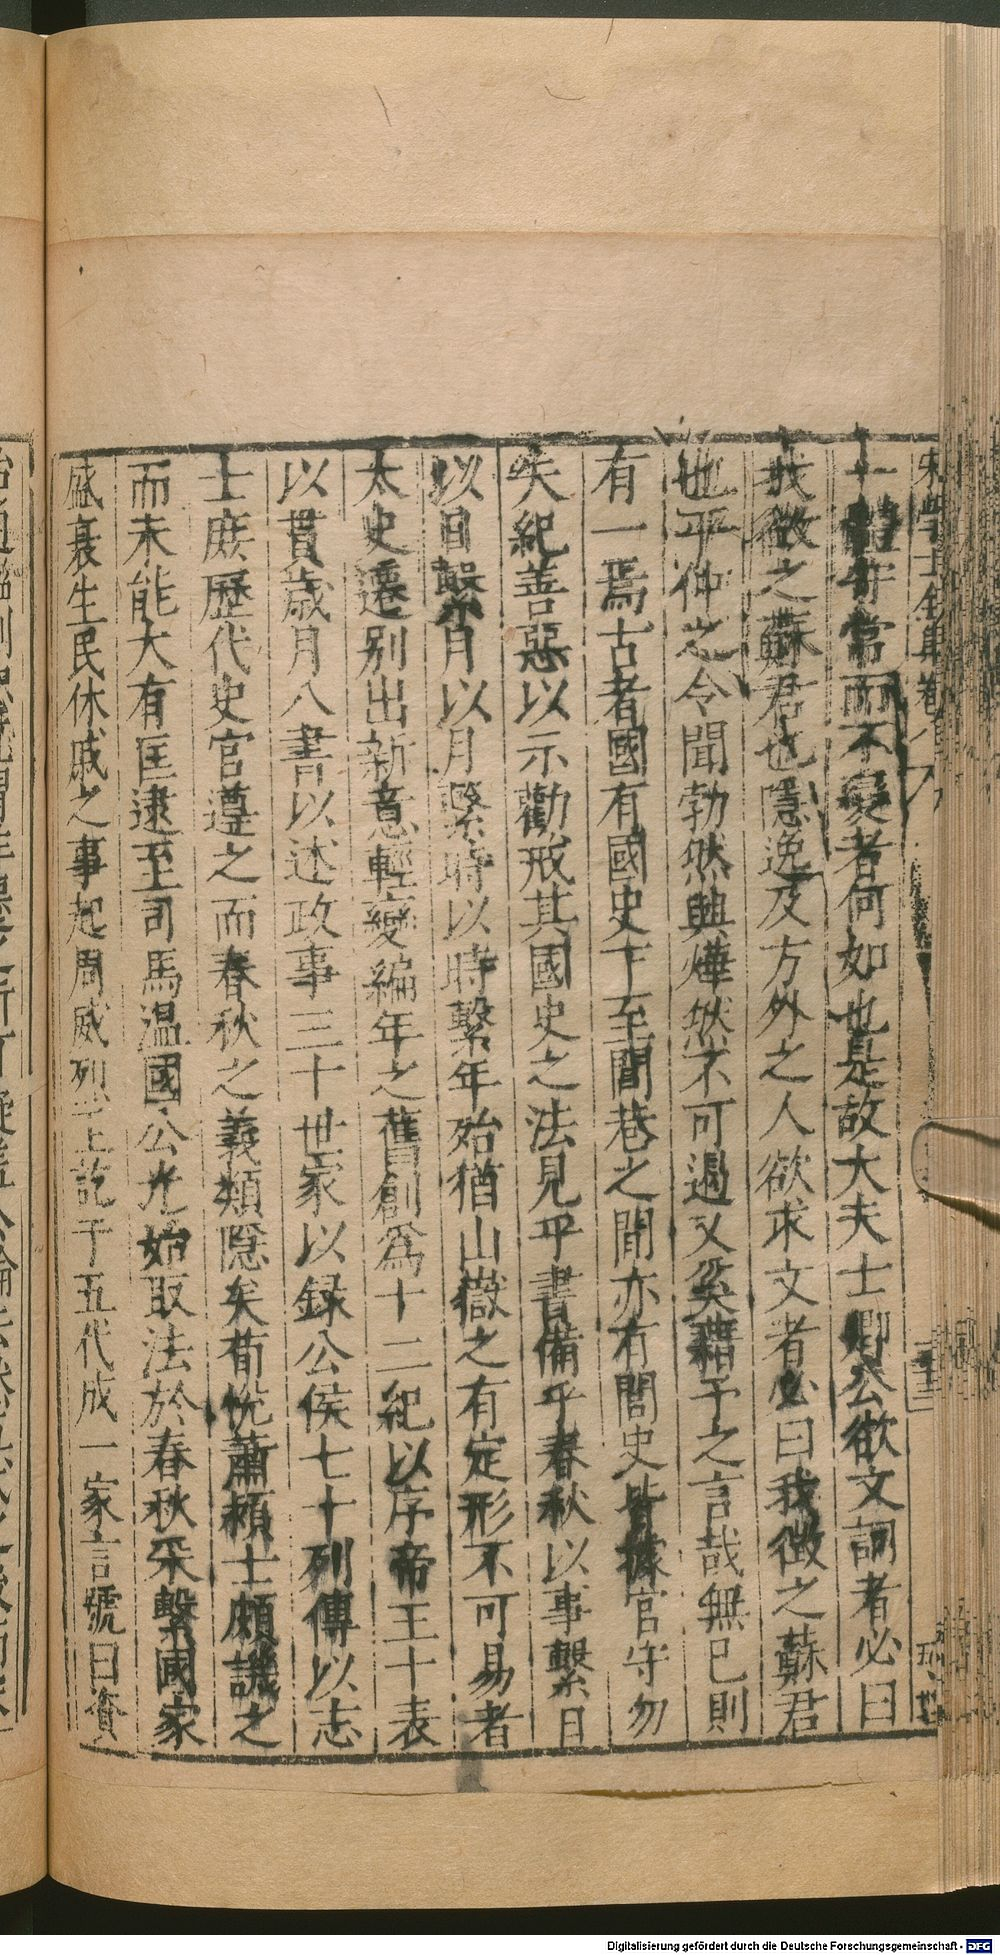 宋學士全集卷
十體寄常而不變者何如也是故大夫士卿公欲文詞者必曰
我徵之蘇君也隱逸及方外之人欲求文者必曰我徵之蘇君
也平仲之令聞勃然興燁然不可遏乂奚藉予之言哉無已則
有一焉古者國有國史下至閭巷之間亦有閭史皆據官守勿
失紀善惡以示勸戒其國史之法見乎書備乎春秋以事繫日
以日繫月以月繫時以時繫年殆猶山嶽之有定形不可易者
太史遷别出新意輕變編年之舊創爲十二紀以序帝王十表
以貫歲月八書以述政事三十世家以録公侯七十列傳以志
士庶歷代史官遵之而春秋之義頽隱矣荀悅蕭頴士頗譏之
而未能大有匡逮至司馬温國公光始取法於春秋采繫國家
盛衰生民休戚之事起周威烈王訖于五代成一家言號曰資
Digitalisierung gefördert durch die Deutsche Forschungsgemeinschaft - DFG